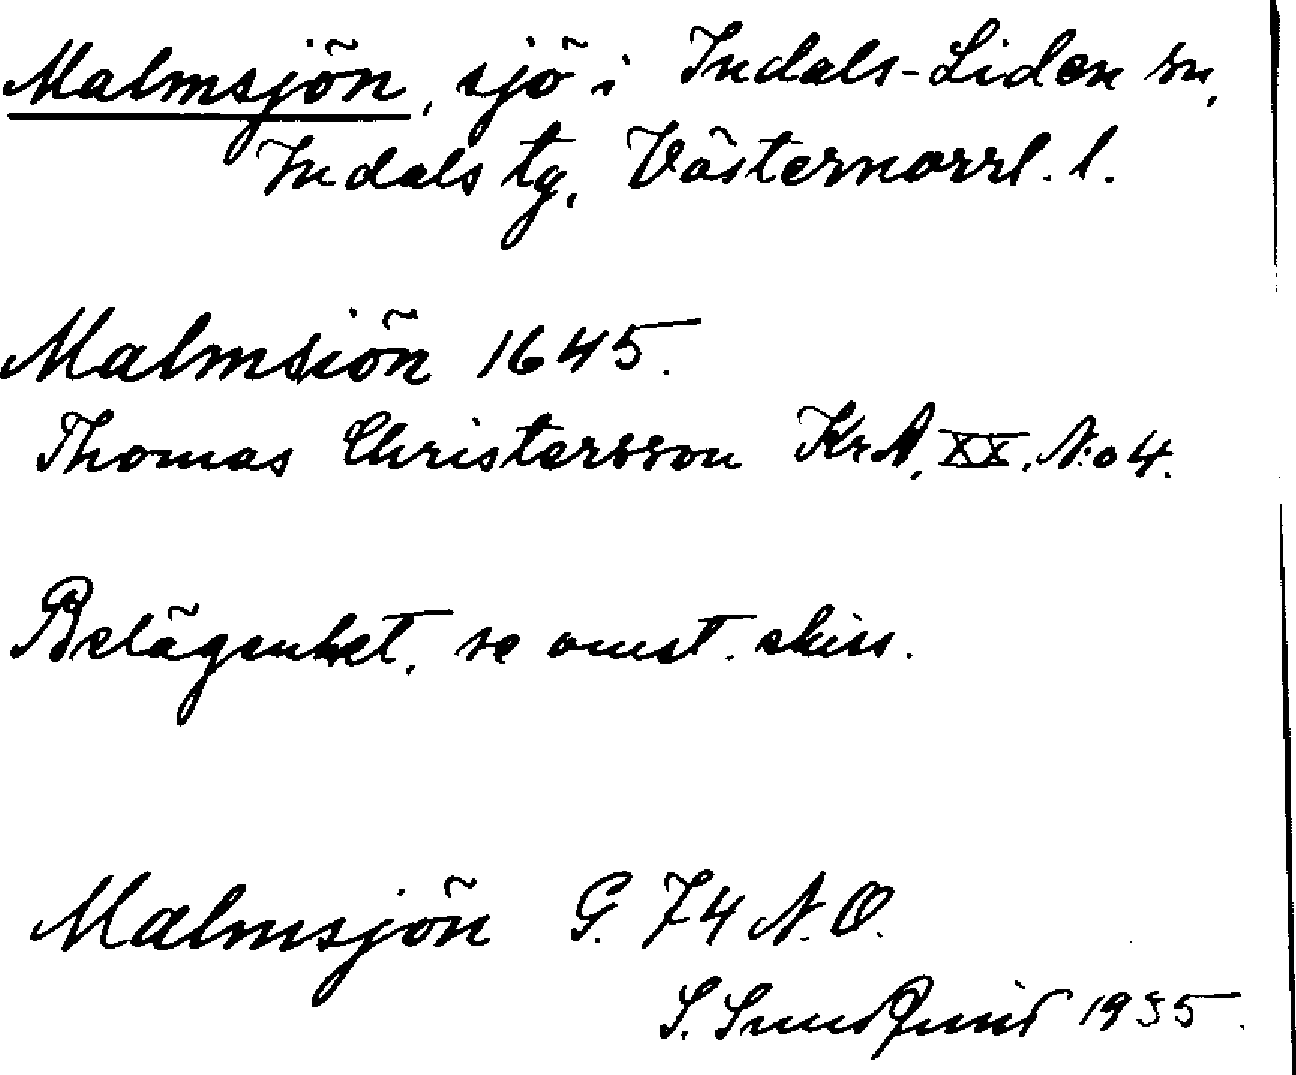 Malmsjön, sjö i Indals-Liden sn,
Indals tg, Västernorrl. l.
Malmsiön 1645.
Thomas Christersson Kr.A. XX. No 4.
Belägenhet, se omst. skiss.
Malmsjön G. 74 N.O.
S. 1935.